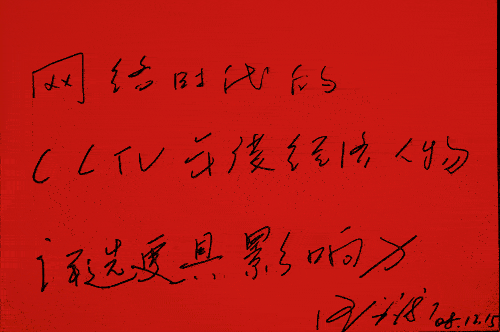 网络时代的
CCTV年度经济人物
评选更具影响力
08.12.15